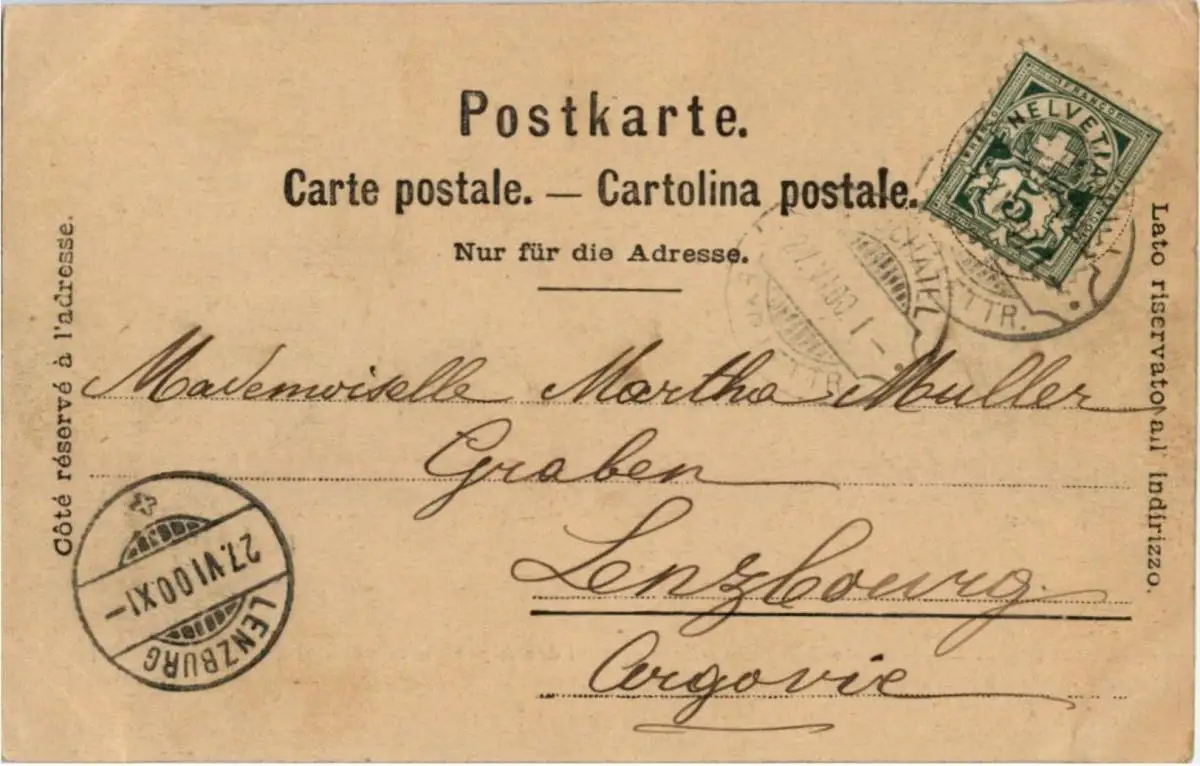 Postkarte.
Carte postale. — Cartolina postale.
Nur für die Adresse.
Côté réservé à l'adresse.
Lato riservato all' indirizzo.
FRANCO
HELVETIA
5
CHATEL
27.VI.00.1–
LETTR.
Mademoiselle Martha Muller
Graben
Lenzbourg.
Argovie
27.VI.00.XI–
LENZBURG